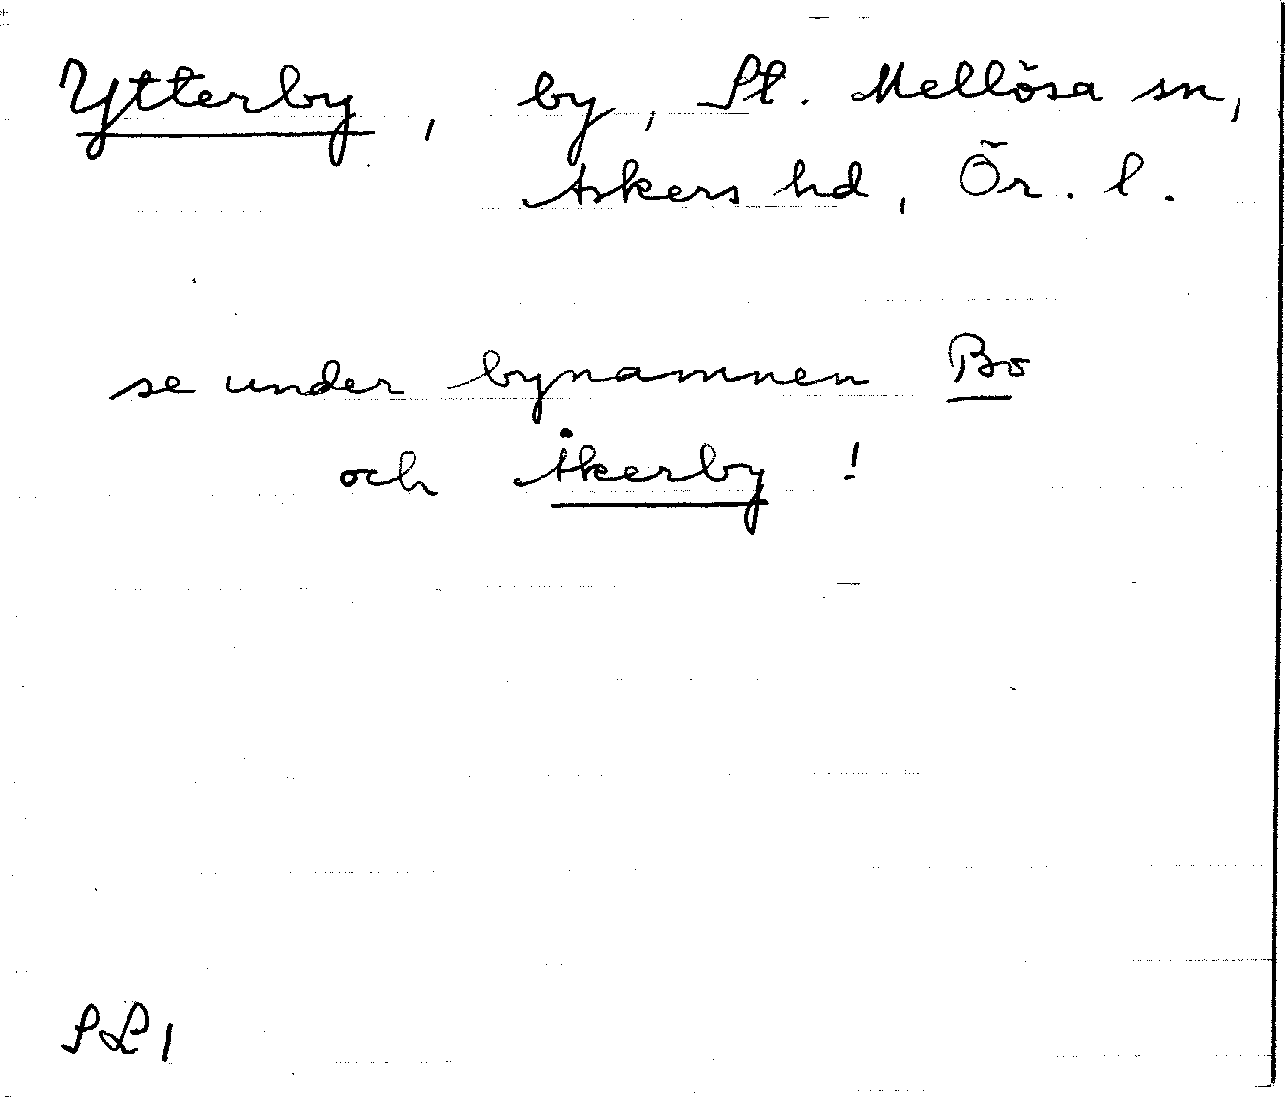 Ytterby, by, St. Mellösa sn,
Askers hd, Ör. l.
se under bynamnen Bo
och Åkerby !
SL 1